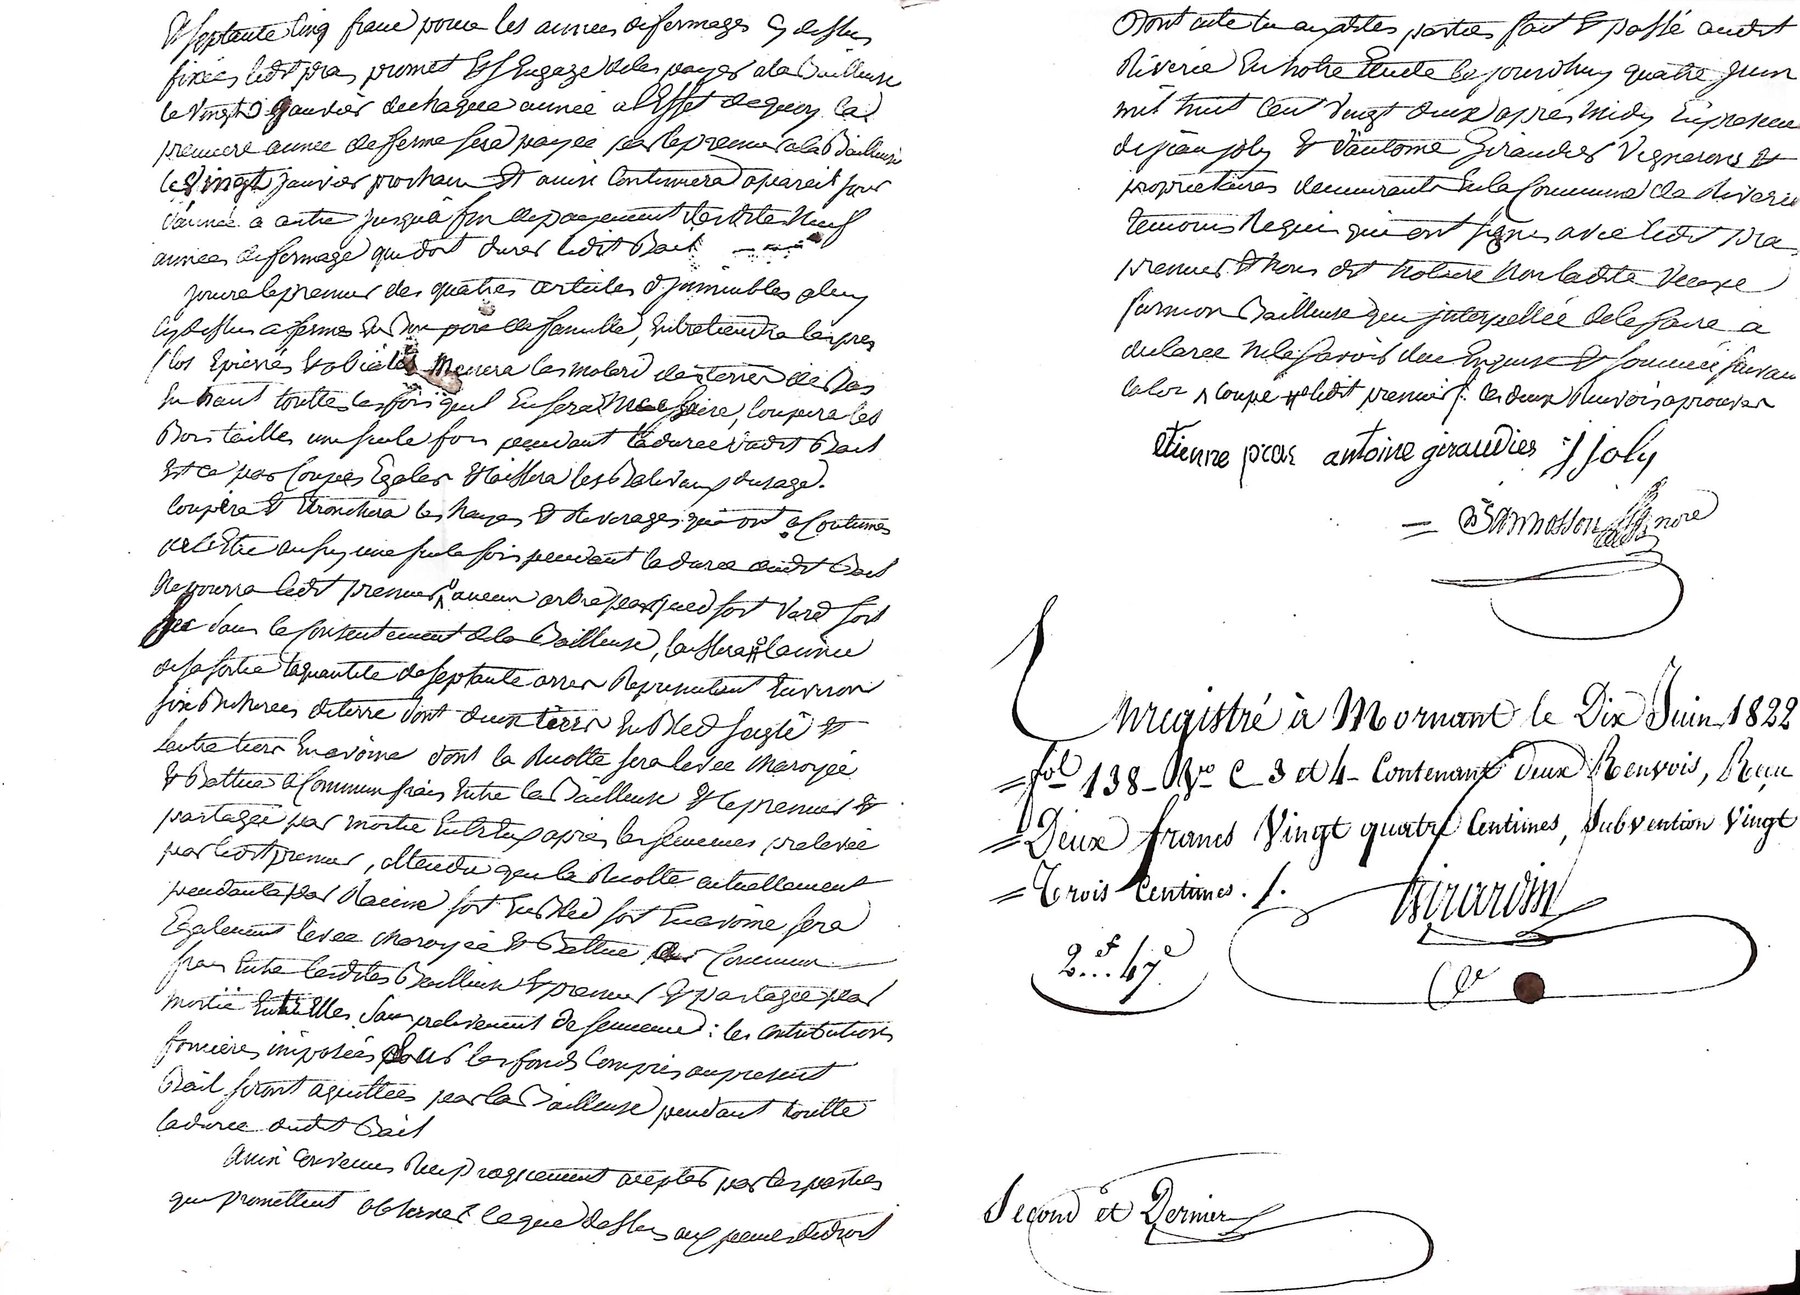 Et septante cinq franc pour les annees de fermages cy dessus
fixées ledit pras promet Et s'Engage de les payer a la Bailleuse
le vingt Janvier de chaque année a l'Effet de quoy la
premiere année de ferme sera payée par le preneur a la Bailleuse
le vingt janvier prochain Et ainsi Continuera a pareil jour
d'année a autre jusqu'à fin de payement des dites Neuf
années de fermage que doit durer ledit Bail
jouira le preneur des quatres articles d'jmmeubles a luy
cy dessus affermés En Bon pere de famille, Entretiendra les prés
clos Epierrés Et menera les molard des terres de Bas
En haut touttes les fois qu'il En sera Necessaire, Coupera les
Bois tailles une seule fois pendant la durée dudit Bail
Et ce par Coupes Egales Et laissera les Baliveaux d'usage.
Coupera Et Etronchera les hayes Et Riverages qui ont a Coutumes
de l'Etre aussy une seule fois pendant la durée dudit Bail
Ne pourra ledit preneur aucun arbre par pied soit verd soit
sec sans le Consentement de la Bailleuse, laissera l'année
de sa sortie la quantité de septante arres Representant Environ
six Bicherees de terre dont deux tiers En Bled seigle Et
l'autre tiers En avoine dont la Recolte sera levée
Et Battue a Commun frais Entre la Bailleuse Et le preneur Et
partagée par moitié Entr'Eux apres les semences prelevée
par ledit preneur, attendu que la Recolte actuellement
pendante par Racine soit En Bled soit En avoine sera
Egalement levée Et Battue a Commun
frais Entre lesdites Bailleuse Et preneur Et partagée par
moitié Entr'Elles sans prelevement de semence : les contributions
foncières imposées sur les fonds Compris au present
Bail seront aquittées par la Bailleuse pendant toutte
la durée dudit Bail
Ainsi Convenus Reciproquement aceptés par les parties
qui promettent observer ce que dessus aux peines de droit
Dont acte aux dites parties fait Et passé audit
Riverie En notre Etude ce jourdhuy quatre juin
mil huit cent vingt deux apres midy En presence
de jean joly Et d'antoine Giraudier Vignerons Et
propriétaires demeurants En la Commune de Riverie
temoins Requis qui ont signés avec ledit Pras
preneur Et Nous dit Notaire Non ladite Veuve
Bailleuse qui jnterpellée de le faire a
declarée Ne le savoir de ce Enquise Et sommée suivant
la loi coupé ledit preneur /: les deux Renvois aprouver
etienne pras antoine giraudier j joly
= Bannosson Nore
Enregistré à Mornant le Dix Juin 1822
= fol 138 Vo C 3 et 4 Contenant deux Renvois, Reçu
= Deux francs Vingt quatre Centimes, subvention Vingt
= Trois Centimes . /.
Girardin
2f.. 47c
Second et Dernier